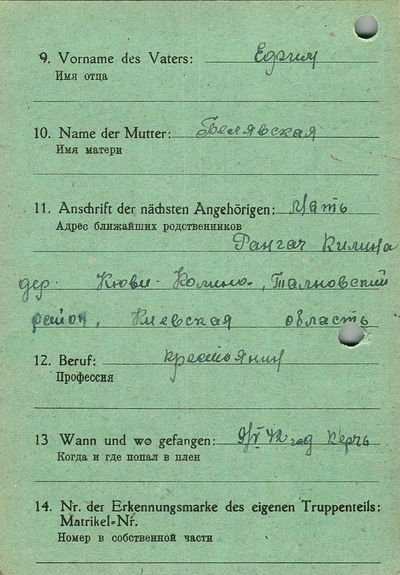 9. Vorname des Vaters: Ефим
Имя отца
10. Name der Mutter: Белявская
Имя матери
11. Anschrift der nächsten Angehörigen: Мать
Адрес ближайших родственников
Килина
дер. Кюви-Колино, Тальновский
район, Киевская область
12. Beruf: крестьянин
Профессия
13 Wann und wo gefangen: 9/V 42 год Керчь
Когда и где попал в плен
14. Nr. der Erkennungsmarke des eigenen Truppenteils:
Matrikel-Nr.
Номер в собственной части